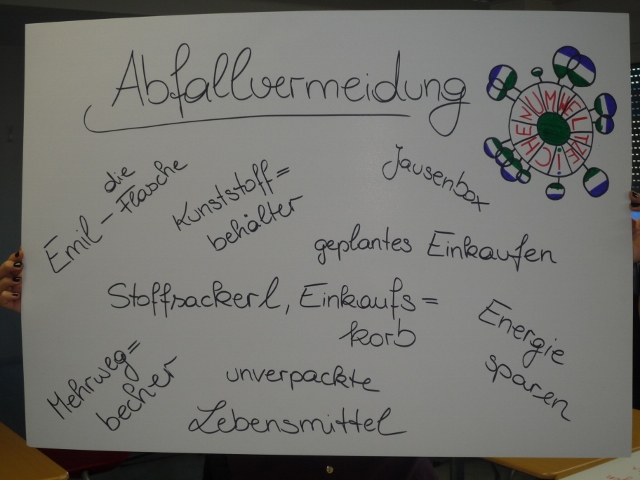 Abfallvermeidung
UMWELTZEICHEN
die
Emil-Flasche
Kunststoff=
behälter
Jausenbox
geplantes Einkaufen
Stoffsackerl, Einkaufs=
korb
Energie
sparen
Mehrweg=
becher
unverpackte
Lebensmittel